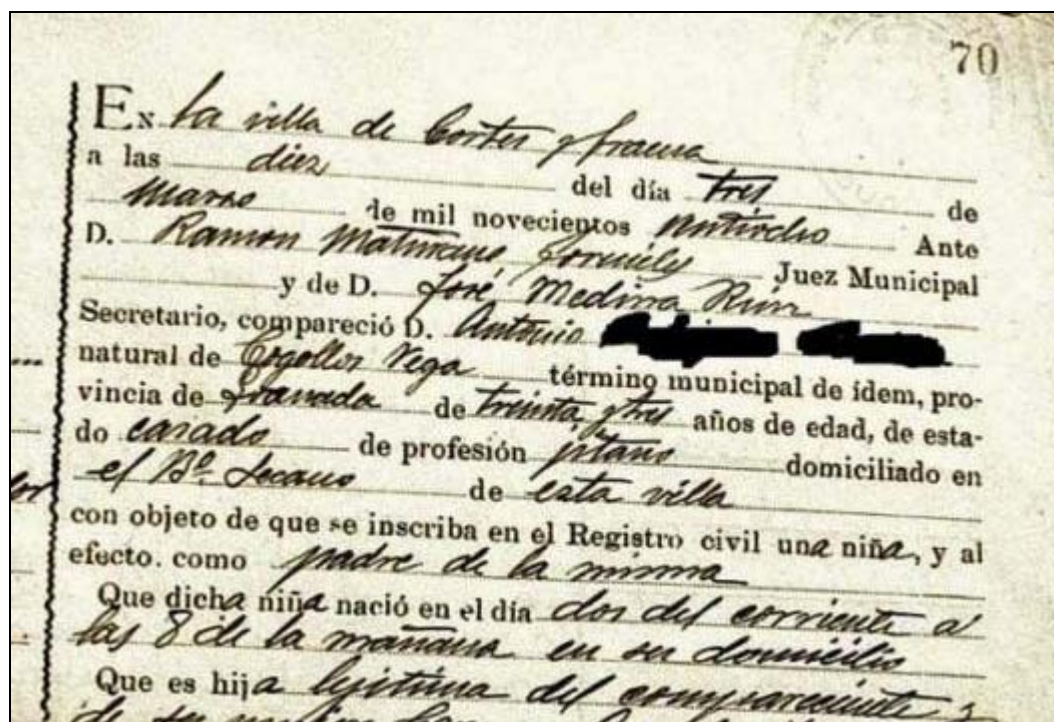 70
En la villa de Cortes y Graena
a las diez del día tres de
Marzo de mil novecientos veintiocho Ante
D. Ramon Juez Municipal
y de D. José Medina Ruiz
Secretario, compareció D. Antonio
natural de Cogollos Vega término municipal de ídem, pro-
vincia de Granada de treinta y tres años de edad, de esta-
do casado de profesión jitano domiciliado en
el Bº. Secano de esta villa
con objeto de que se inscriba en el Registro civil una niña, y al
efecto. como padre de la misma
Que dicha niña nació en el día dos del corriente a
las 8 de la mañana en su domicilio
Que es hija lejitima del compareciente y
de su